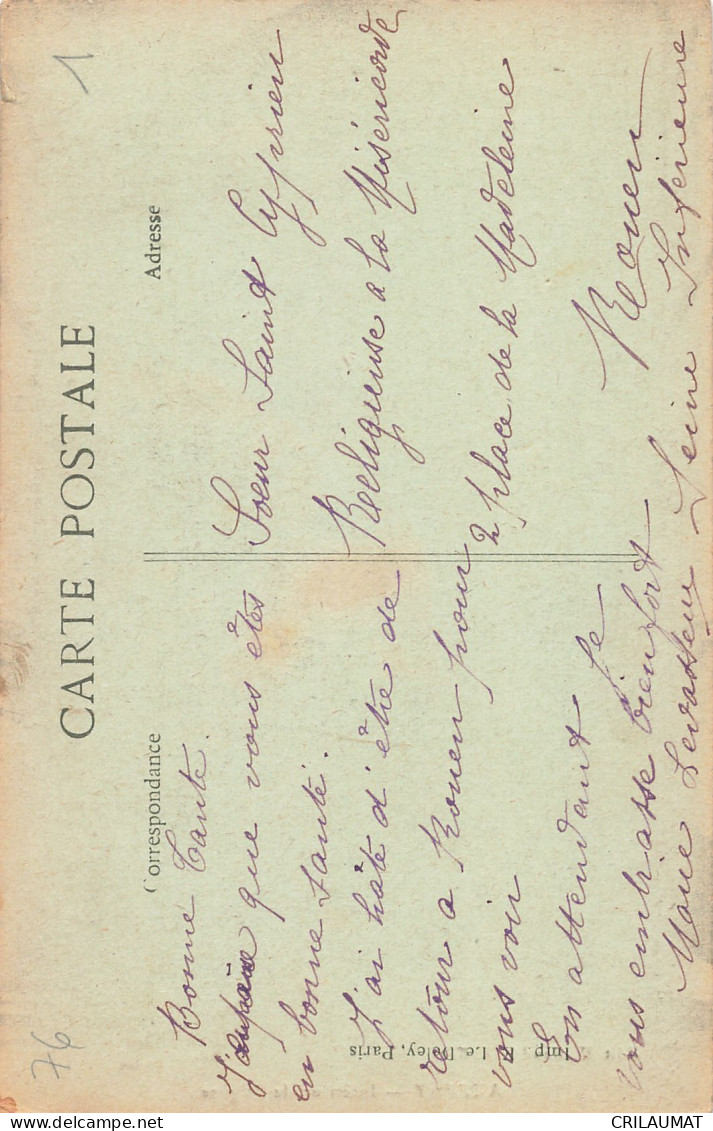 CARTE POSTALE
Correspondance
Adresse
1
76
Bonne Tante.
J'espère que vous êtes
en bonne santé.
J'ai hâte d'être de
retour a Rouen pour
vous voir
En attendant je
vous embrasse bien fort
Levasseur
Soeur Saint Cyprien
Religieuse a la Miséricorde
2 place de la Madeleine
Rouen
Seine Inférieure
Imp. Le Deley, Paris
delcampe.net
CRILAUMAT